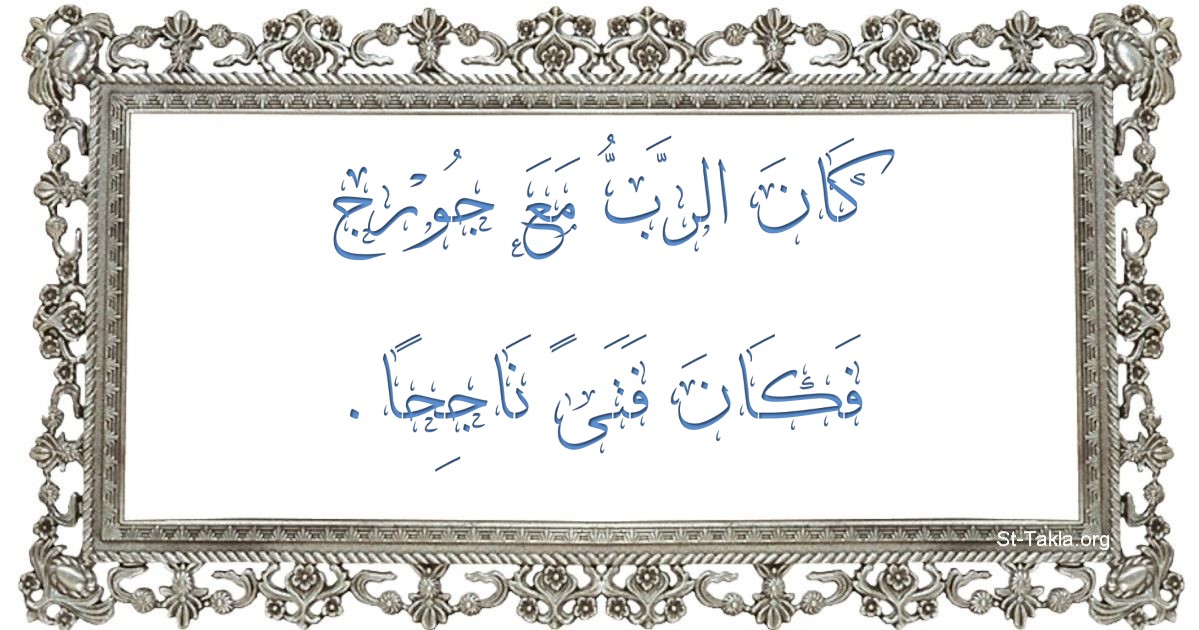 كَانَ الرَّبُّ مَعَ جُوْرج
فَكَانَ فَتَىً نَاجِحًا.
St-Takla.org